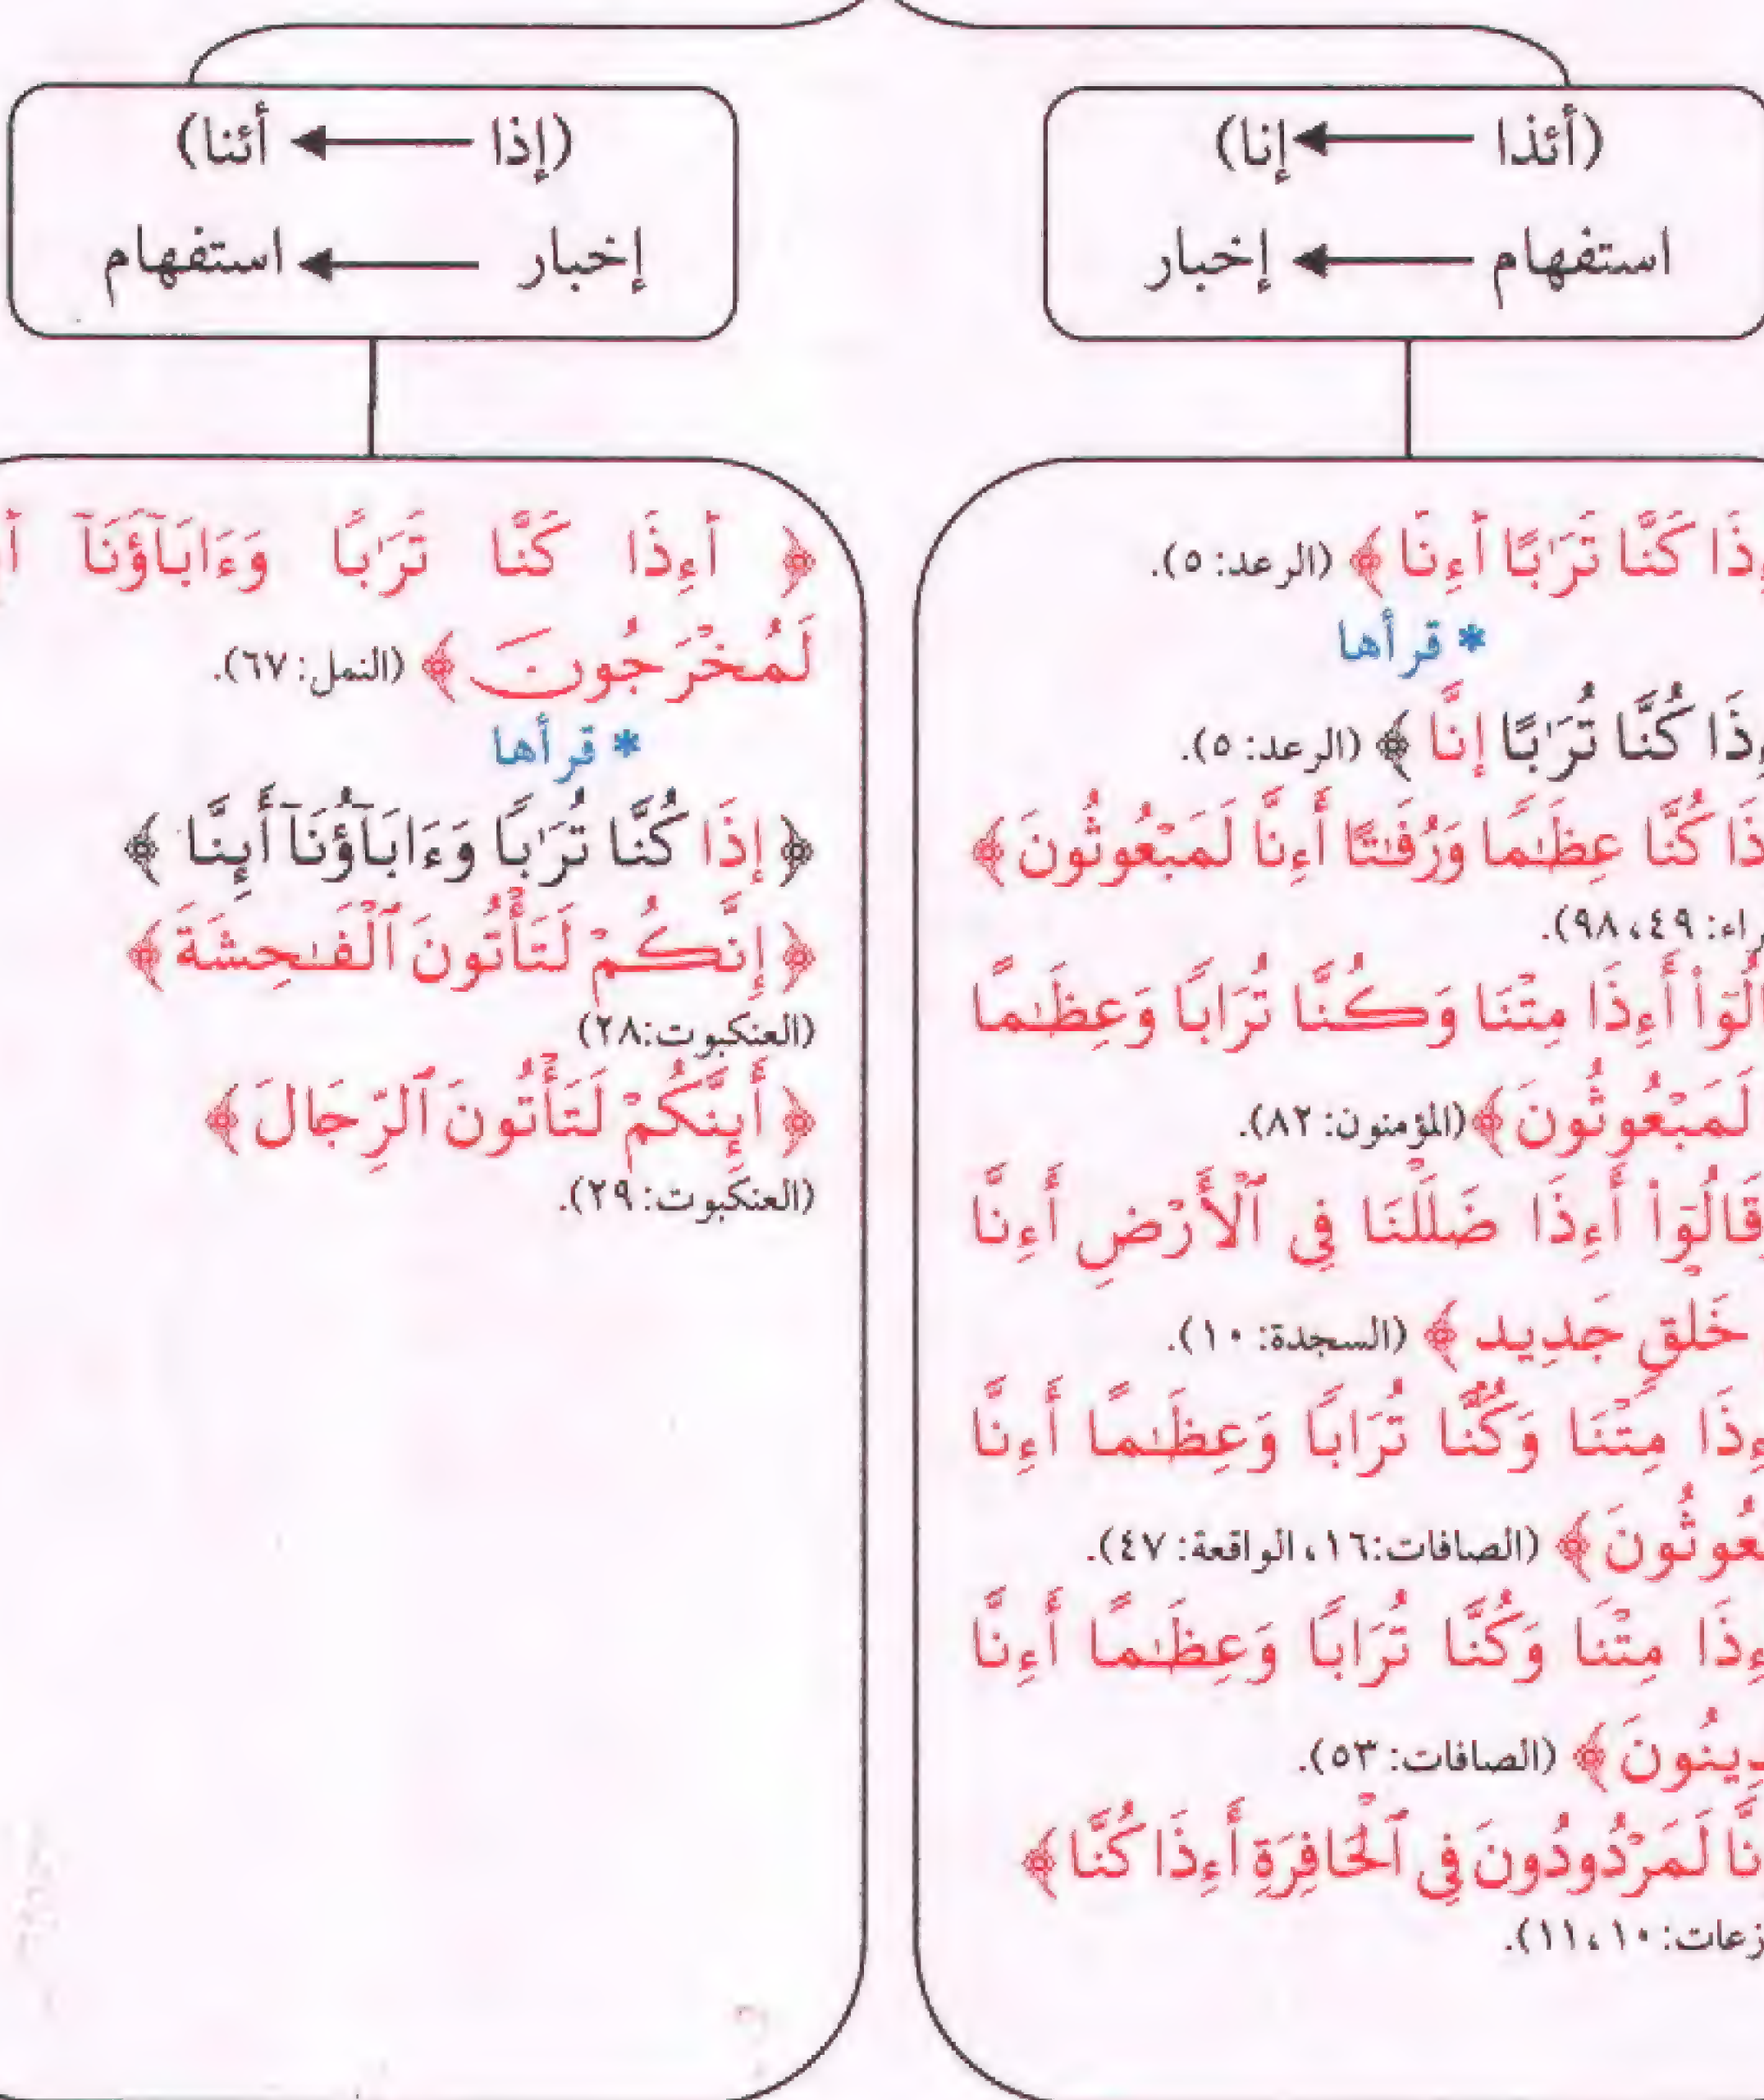 (أئذا ← إنا)
استفهام ← إخبار
كُنَّا تُرَٰبًا أَءِنَّا ﴾ (الرعد: ٥).
* قرأها
كُنَّا تُرَٰبًا إِنَّا ﴾ (الرعد: ٥).
كُنَّا عِظَٰمًا وَرُفَٰتًا أَءِنَّا لَمَبۡعُوثُونَ ﴾
٤٩، ٩٨).
أَءِذَا مِتۡنَا وَكُنَّا تُرَابًا وَعِظَٰمًا
لَمَبۡعُوثُونَ ﴾ (المؤمنون: ٨٢).
وَقَالُوٓاْ أَءِذَا ضَلَلۡنَا فِي ٱلۡأَرۡضِ أَءِنَّا
خَلۡقٖ جَدِيدِۭ ﴾ (السجدة: ١٠).
مِتۡنَا وَكُنَّا تُرَابًا وَعِظَٰمًا أَءِنَّا
﴾ (الصافات: ١٦، الواقعة: ٤٧).
مِتۡنَا وَكُنَّا تُرَابًا وَعِظَٰمًا أَءِنَّا
﴾ (الصافات: ٥٣).
لَمَرۡدُودُونَ فِي ٱلۡحَافِرَةِ أَءِذَا كُنَّا ﴾
١٠، ١١).
(إذا ← أئنا)
إخبار ← استفهام
﴿ أَءِذَا كُنَّا تُرَٰبًا وَءَابَآؤُنَآ
لَمُخۡرَجُونَ ﴾ (النمل: ٦٧).
* قرأها
﴿ إِذَا كُنَّا تُرَٰبًا وَءَابَآؤُنَآ أَئِنَّا ﴾
﴿ إِنَّكُمۡ لَتَأۡتُونَ ٱلۡفَٰحِشَةَ ﴾
(العنكبوت: ٢٨)
﴿ أَئِنَّكُمۡ لَتَأۡتُونَ ٱلرِّجَالَ ﴾
(العنكبوت: ٢٩).